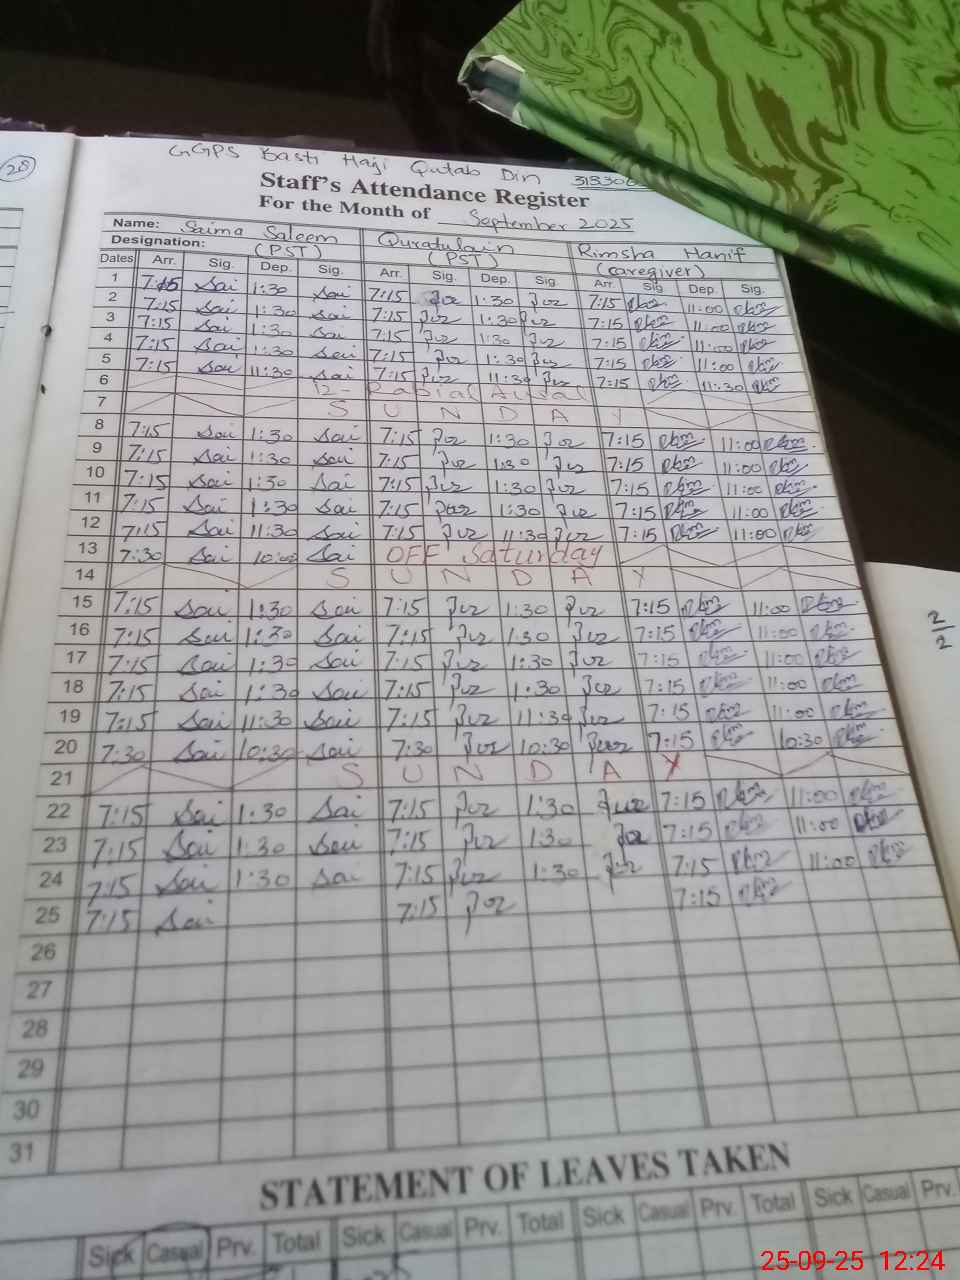 28
GGPS Basti Haji Qutab Din 313306
Staff's Attendance Register
For the Month of September 2025
Name: Saima Saleem Quratulain Rimsha Hanif
Designation: (PST) (PST) (caregiver)
Dates Arr. Sig. Dep. Sig. Arr. Sig. Dep. Sig. Arr. Sig. Dep. Sig.
1 7:15 Sai 1:30 Sai 7:15 1:30 7:15 11:00
2 7:15 Sai 1:30 Sai 7:15 1:30 7:15 11:00
3 7:15 Sai 1:30 Sai 7:15 1:30 7:15 11:00
4 7:15 Sai 1:30 Sai 7:15 1:30 7:15 11:00
5 7:15 Sai 11:30 Sai 7:15 11:30 7:15 11:30
6 12-
7 SUNDAY
8 7:15 Sai 1:30 Sai 7:15 1:30 7:15 11:00
9 7:15 Sai 1:30 Sai 7:15 1:30 7:15 11:00
10 7:15 Sai 1:30 Sai 7:15 1:30 7:15 11:00
11 7:15 Sai 1:30 Sai 7:15 1:30 7:15 11:00
12 7:15 Sai 11:30 Sai 7:15 11:30 7:15 11:00
13 7:30 Sai 10:00 Sai OFF Saturday
14 SUNDAY
15 7:15 Sai 1:30 Sai 7:15 1:30 7:15 11:00
16 7:15 Sai 1:30 Sai 7:15 1:30 7:15 11:00
17 7:15 Sai 1:30 Sai 7:15 1:30 7:15 11:00
18 7:15 Sai 1:30 Sai 7:15 1:30 7:15 11:00
19 7:15 Sai 11:30 Sai 7:15 11:30 7:15 11:00
20 7:30 Sai 10:30 Sai 7:30 10:30 7:15 10:30
21 SUNDAY
22 7:15 Sai 1:30 Sai 7:15 1:30 7:15 11:00
23 7:15 Sai 1:30 Sai 7:15 1:30 7:15 11:00
24 7:15 Sai 1:30 Sai 7:15 1:30 7:15 11:00
25 7:15 Sai 7:15 7:15
26
27
28
29
30
31
2/2
STATEMENT OF LEAVES TAKEN
Sick Casual Prv. Total Sick Casual Prv. Total Sick Casual Prv. Total Sick Casual Prv.
25-09-25 12:24